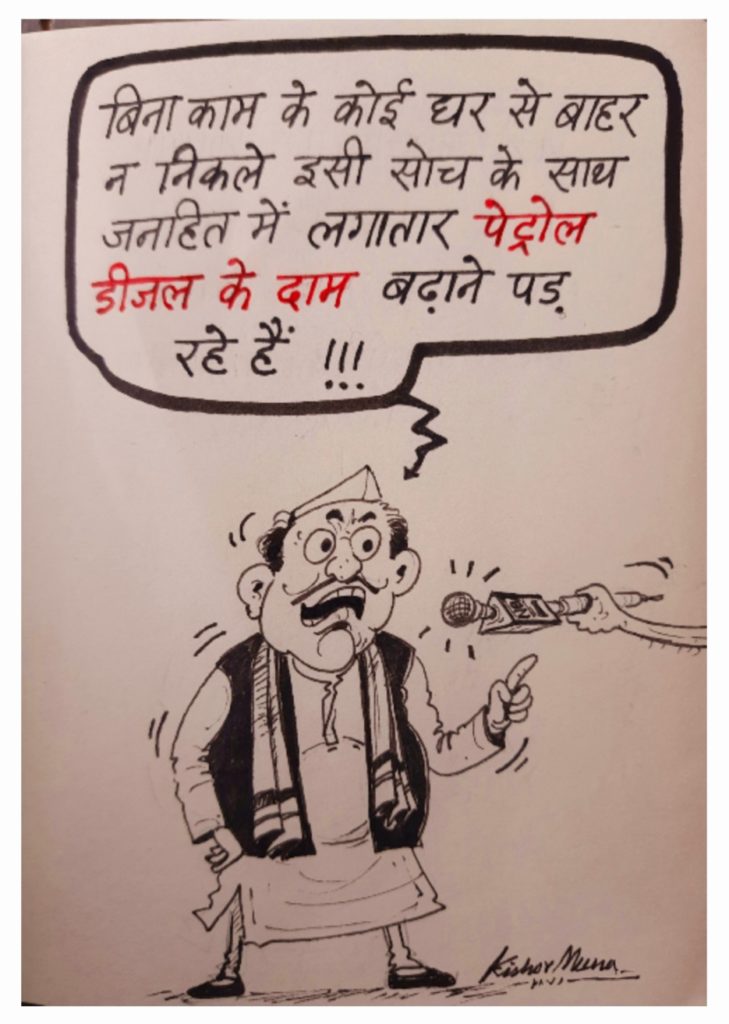 बिना काम के कोई घर से बाहर
न निकले इसी सोच के साथ
जनहित में लगातार पेट्रोल
डीजल के दाम बढ़ाने पड़
रहे हैं !!!
Kishor Meena